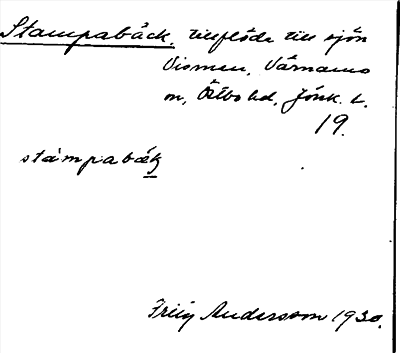 Stampabäck, tillflöde till sjön
Vismen, Värnamo
sn, Östbo hd, Jönk. l.
19.
stàmpabäk
Frig Andersson 1930.